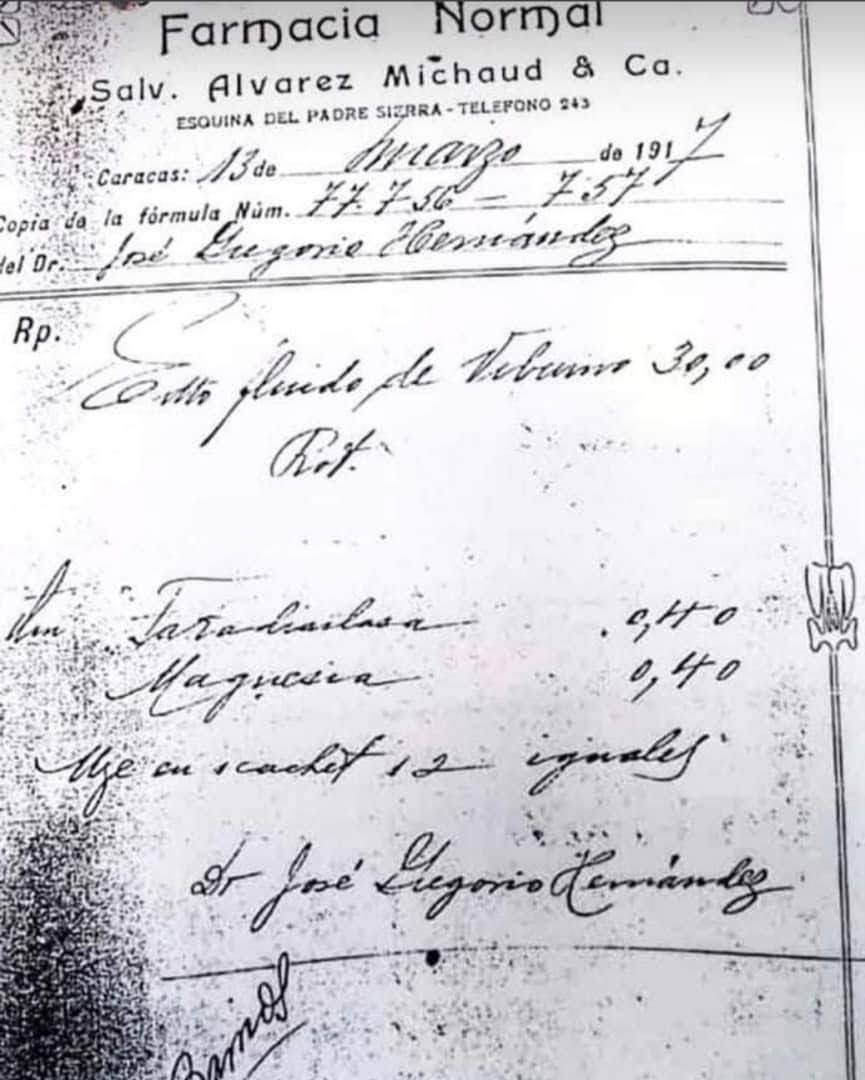 Farmacia Normal
Salv. Alvarez Michaud & Ca.
ESQUINA DEL PADRE SIERRA - TELEFONO 243
Caracas: 13 de marzo de 1917
Copia de la fórmula Núm. 77.756 = 757
del Dr. José Gregorio Hernández
Rp.
fluido de Viburno 30,00
Rot.
0,40
Magnesia 0,40
en scachet 12 iguales
Dr José Gregorio Hernández